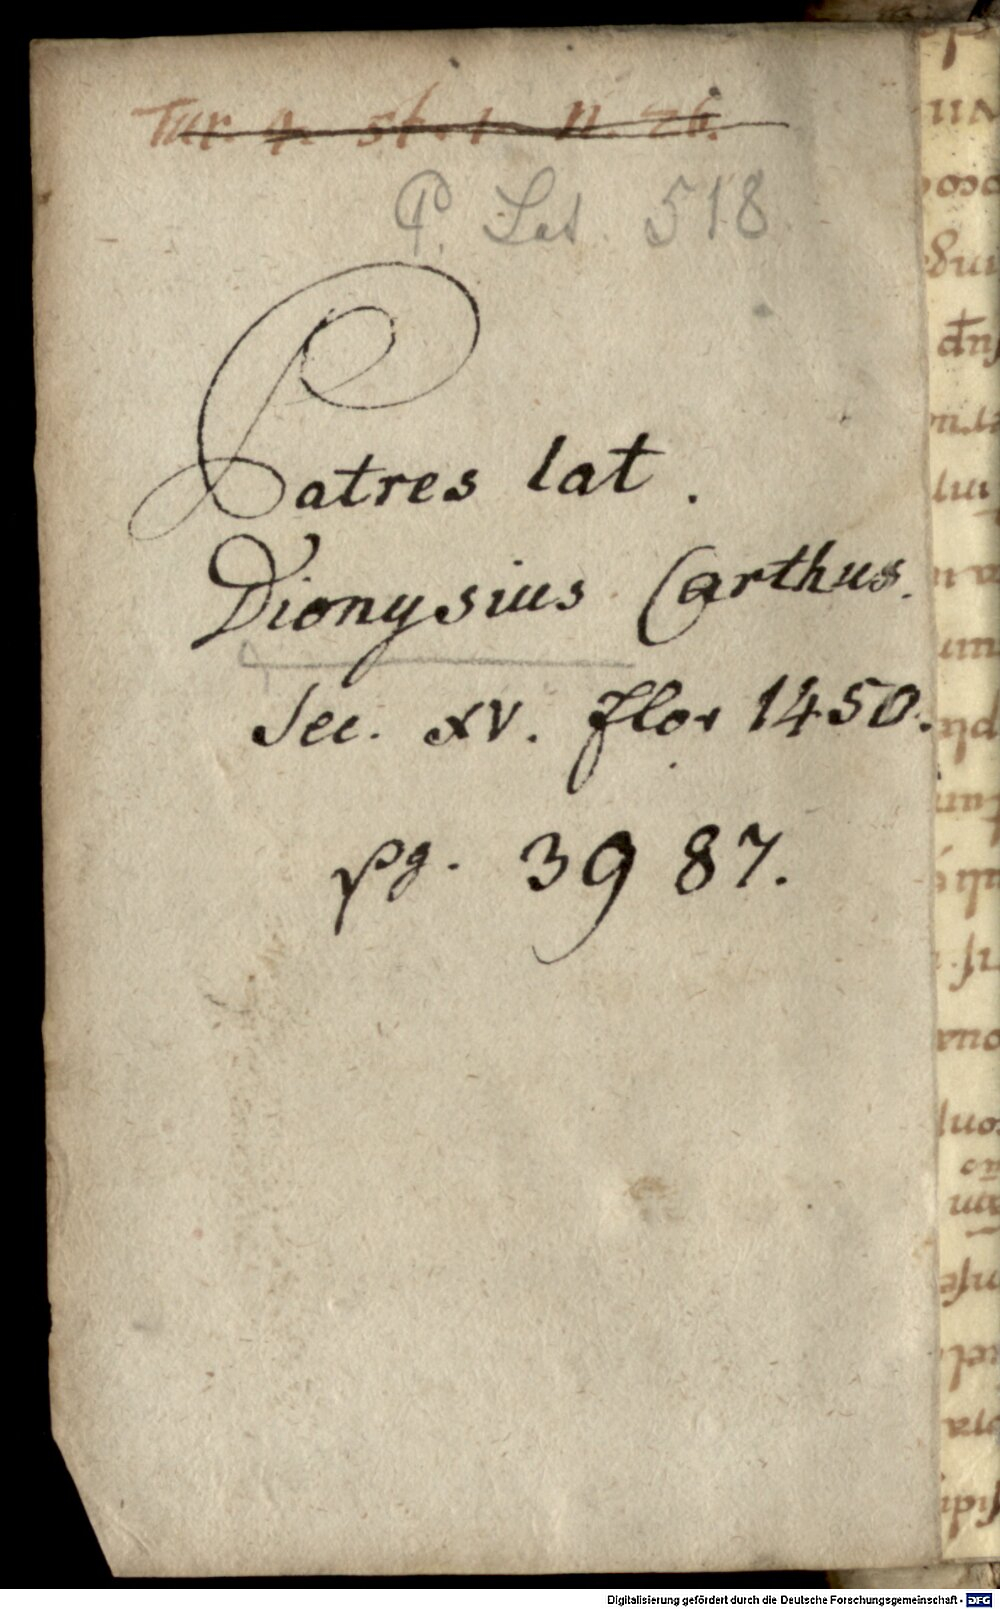 Tur. 4. st. 1. N. 26.
P. Lat. 518
Patres lat.
Dionysius Carthus.
Sec. XV. flor 1450.
pg. 3987.
Digitalisierung gefördert durch die Deutsche Forschungsgemeinschaft - DFG